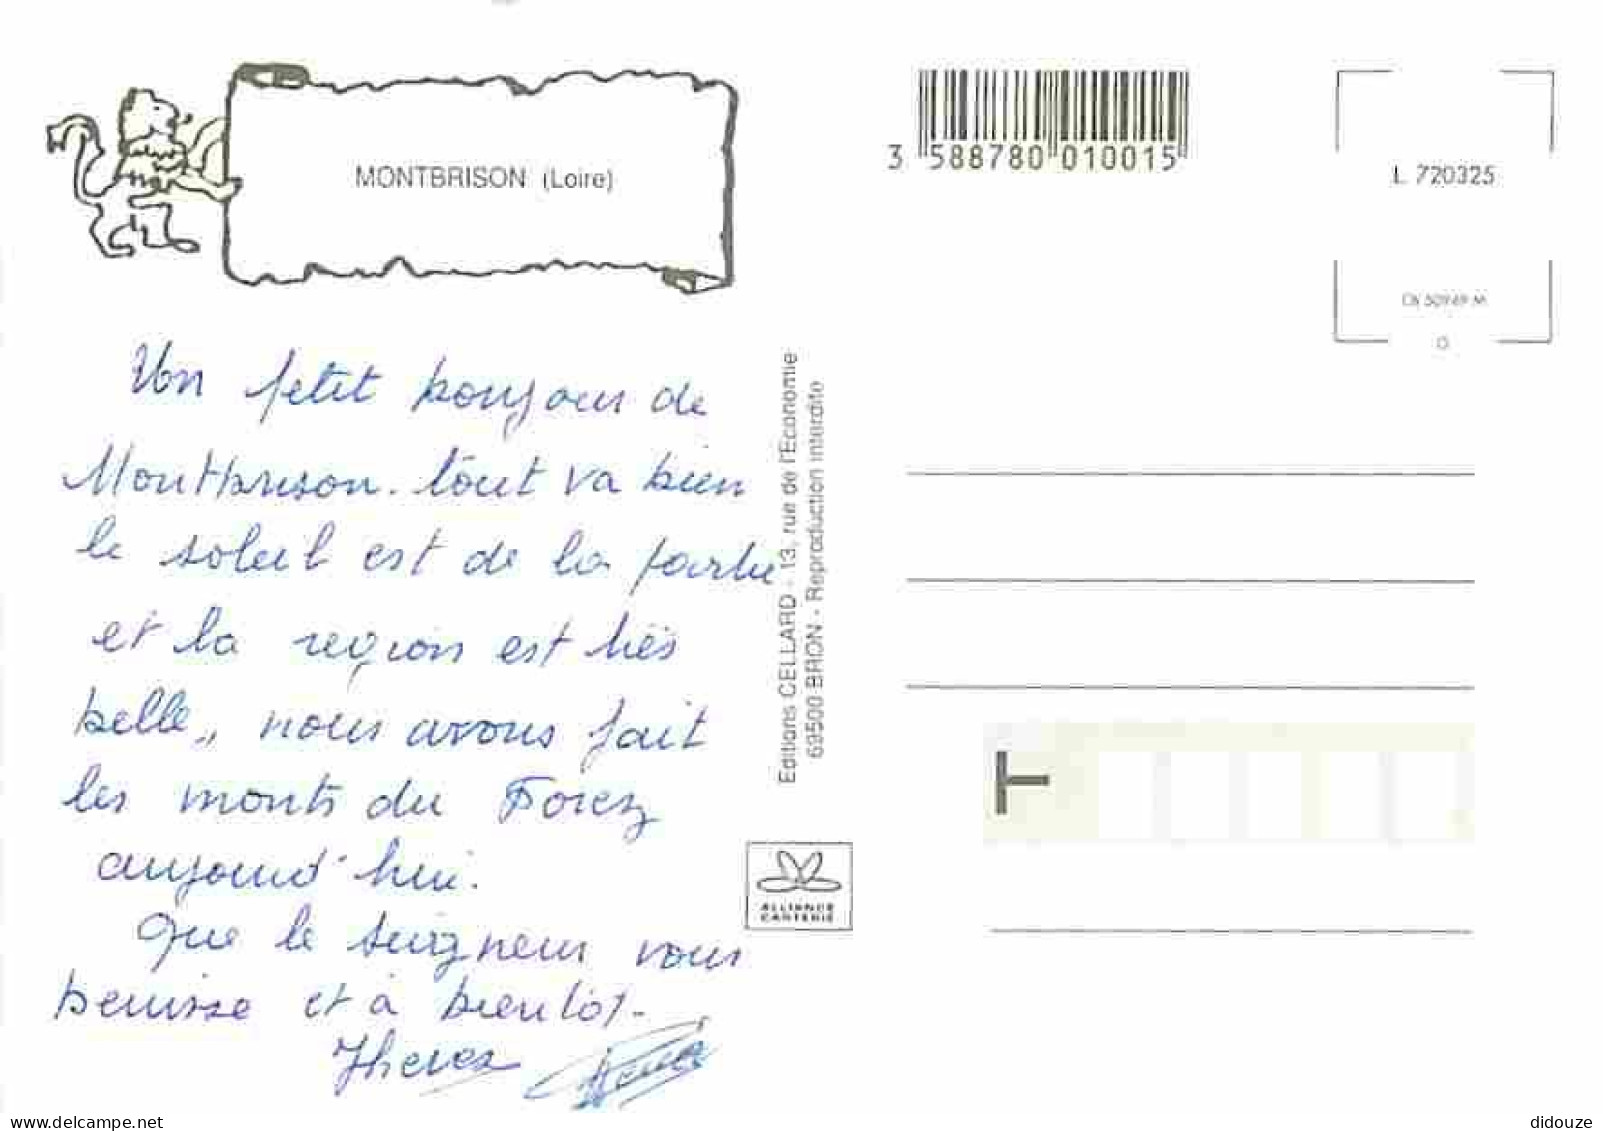 MONTBRISON (Loire)
3 588780 010015
L 720325
Un petit bonjour de
Montbrison. tout va bien
le soleil est de la partie
et la region est très
belle,, nous avons fait
les monts du Forez
aujourd'hui.
Que le seigneur vous
benisse et à bientôt.
Editions CELLARD - 13, rue de l'Economie
69500 BRON - Reproduction interdite
ALLIANCE
CARTERIE
T
delcampe.net
didouze